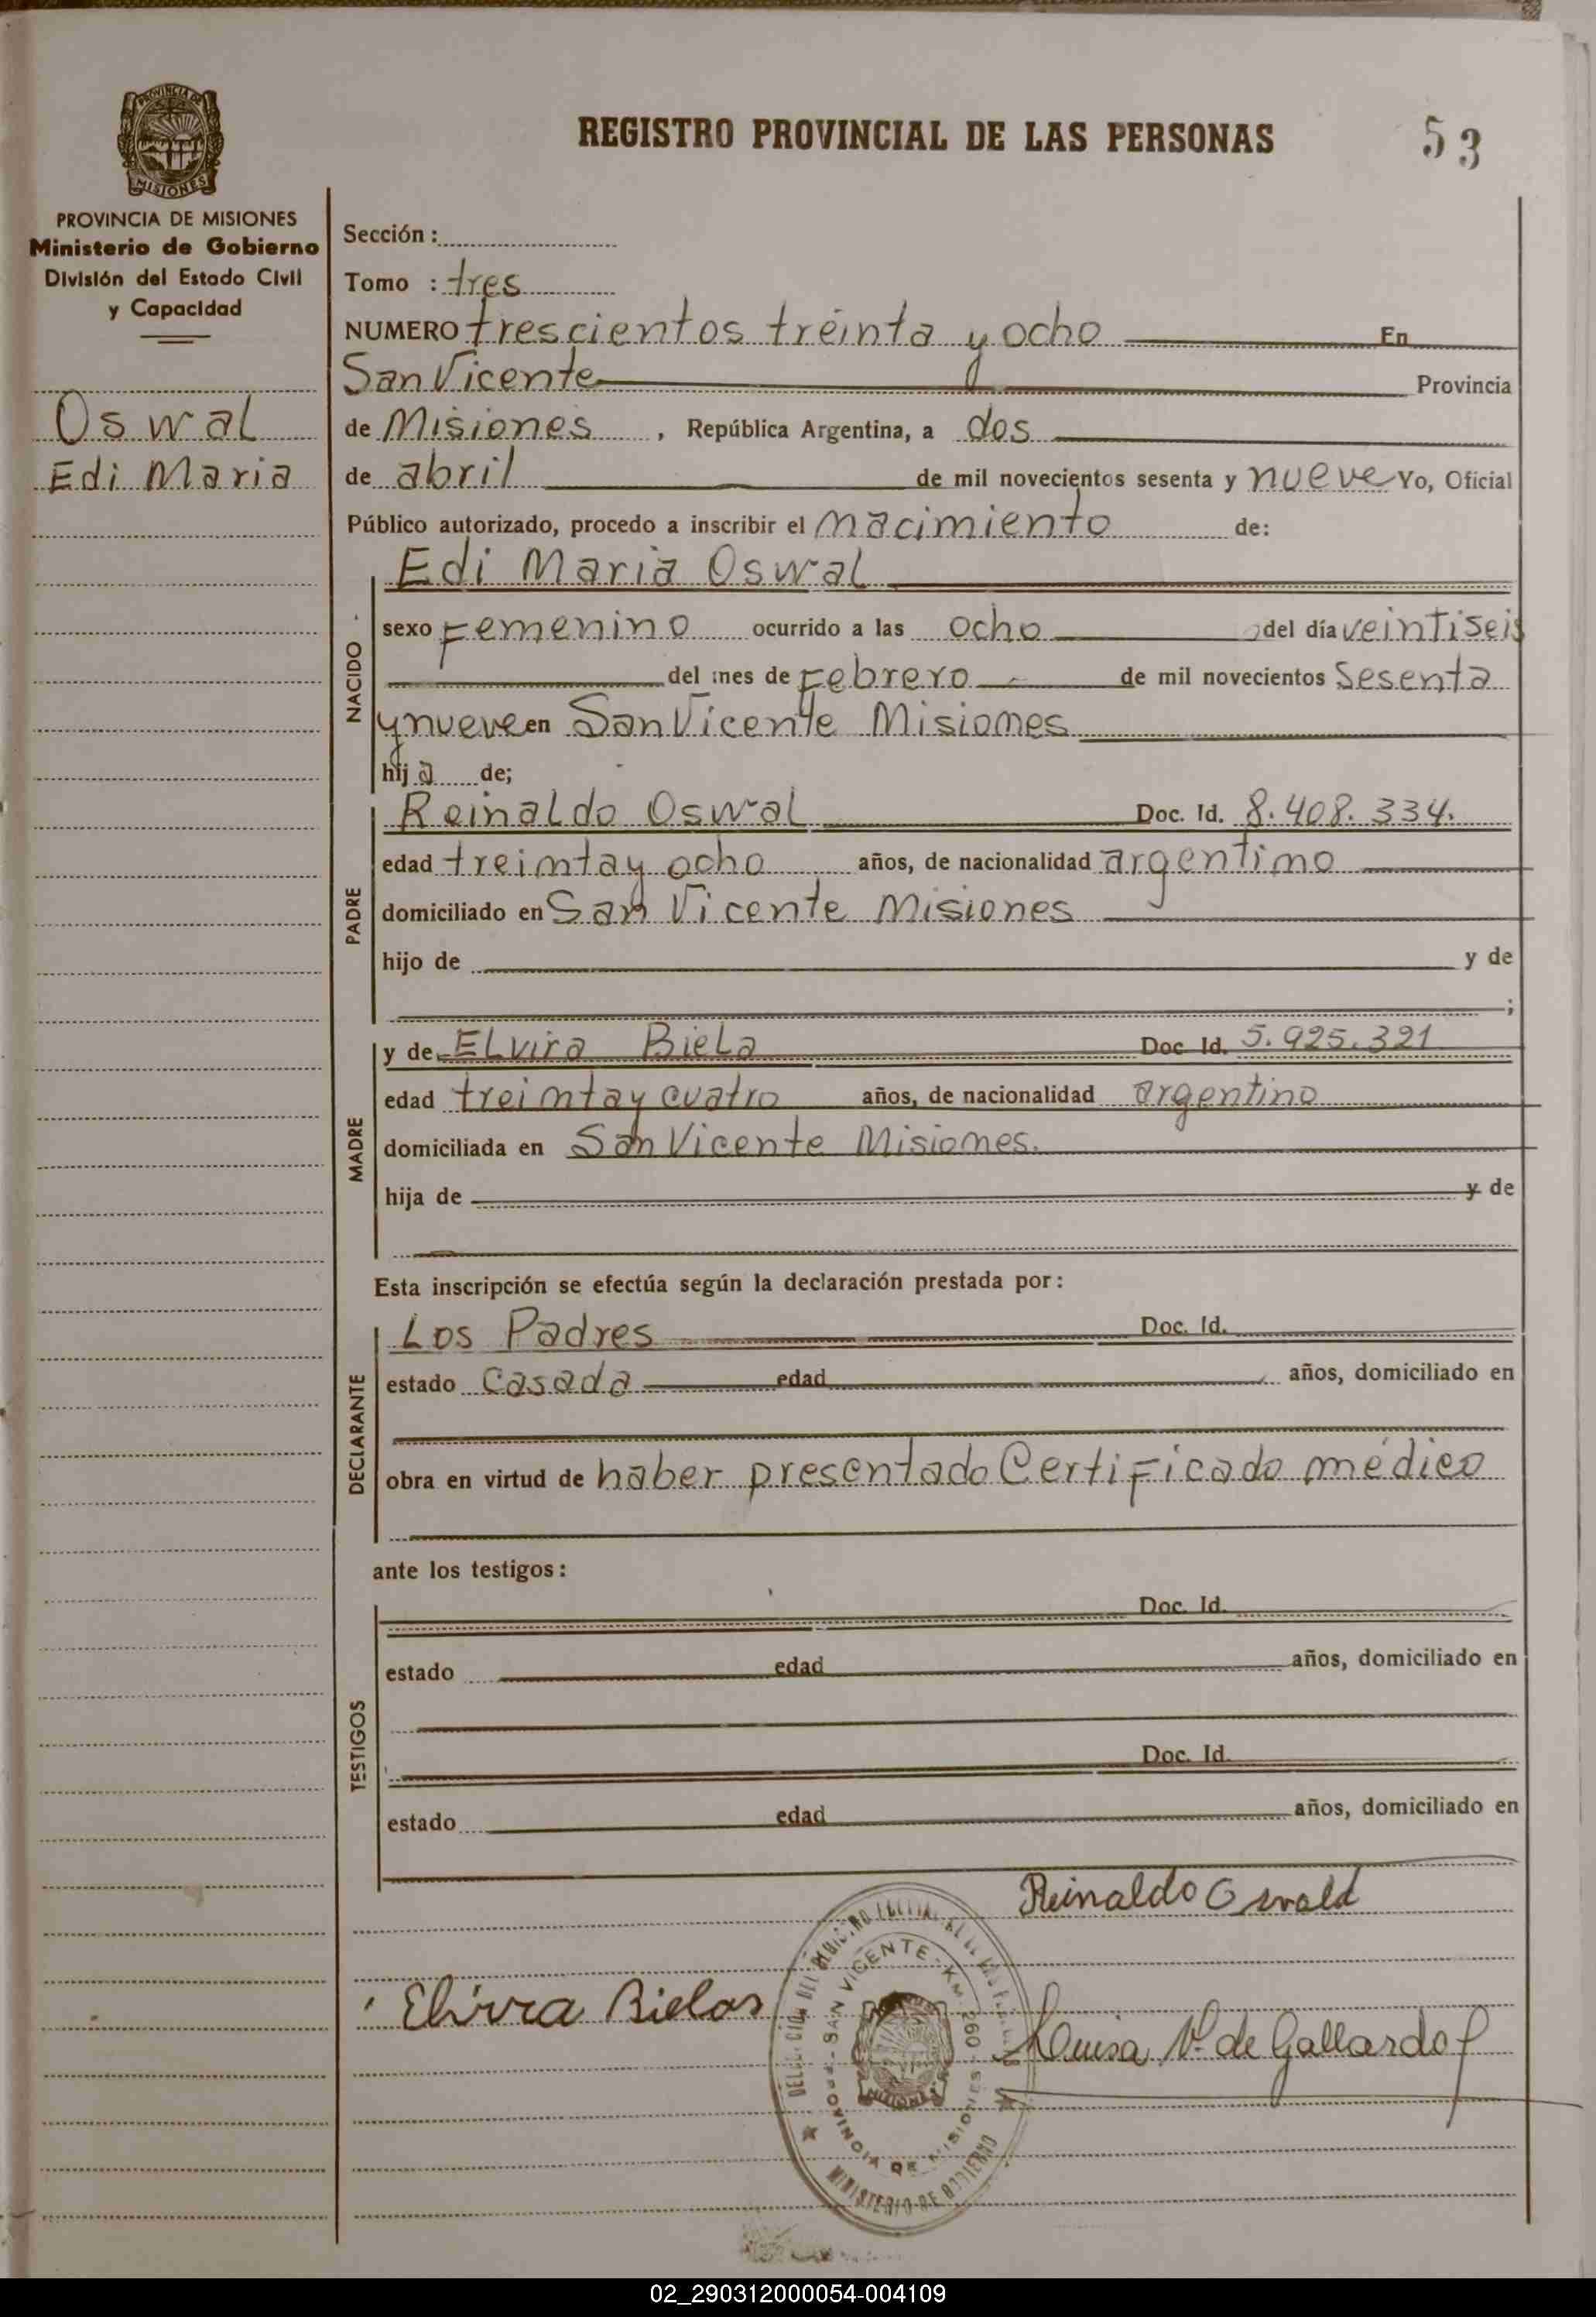 REGISTRO PROVINCIAL DE LAS PERSONAS
53
PROVINCIA DE
MISIONES
PROVINCIA DE MISIONES
Ministerio de Gobierno
División del Estado Civil
y Capacidad
Oswal
Edi Maria
Sección :
Tomo : tres
NUMERO trescientos treinta y ocho En
San Vicente Provincia
de Misiones , República Argentina, a dos
de abril de mil novecientos sesenta y nueve Yo, Oficial
Público autorizado, procedo a inscribir el nacimiento de:
NACIDO
Edi Maria Oswal
sexo Femenino ocurrido a las ocho del día veintiseis
del mes de Febrero de mil novecientos sesenta
y nueve en San Vicente Misiones
hija de;
PADRE
Reinaldo Oswal Doc. Id. 8.408.334.
edad treinta y ocho años, de nacionalidad argentino
domiciliado en San Vicente Misiones
hijo de y de
;
MADRE
y de Elvira Biela Doc Id. 5.925.321
edad treinta y cuatro años, de nacionalidad argentino
domiciliada en San Vicente Misiones.
hija de y de
Esta inscripción se efectúa según la declaración prestada por:
DECLARANTE
Los Padres Doc. Id.
estado Casada edad años, domiciliado en
obra en virtud de haber presentado Certificado médico
ante los testigos:
TESTIGOS
Doc. Id.
estado edad años, domiciliado en
Doc. Id.
estado edad años, domiciliado en
Reinaldo Osvald
Elivra Bielas
Luisa V. de Gallardo
SAN VICENTE - KM. 260
PROVINCIA DE MISIONES
MINISTERIO DE GOBIERNO
MISIONES
02_290312000054-004109